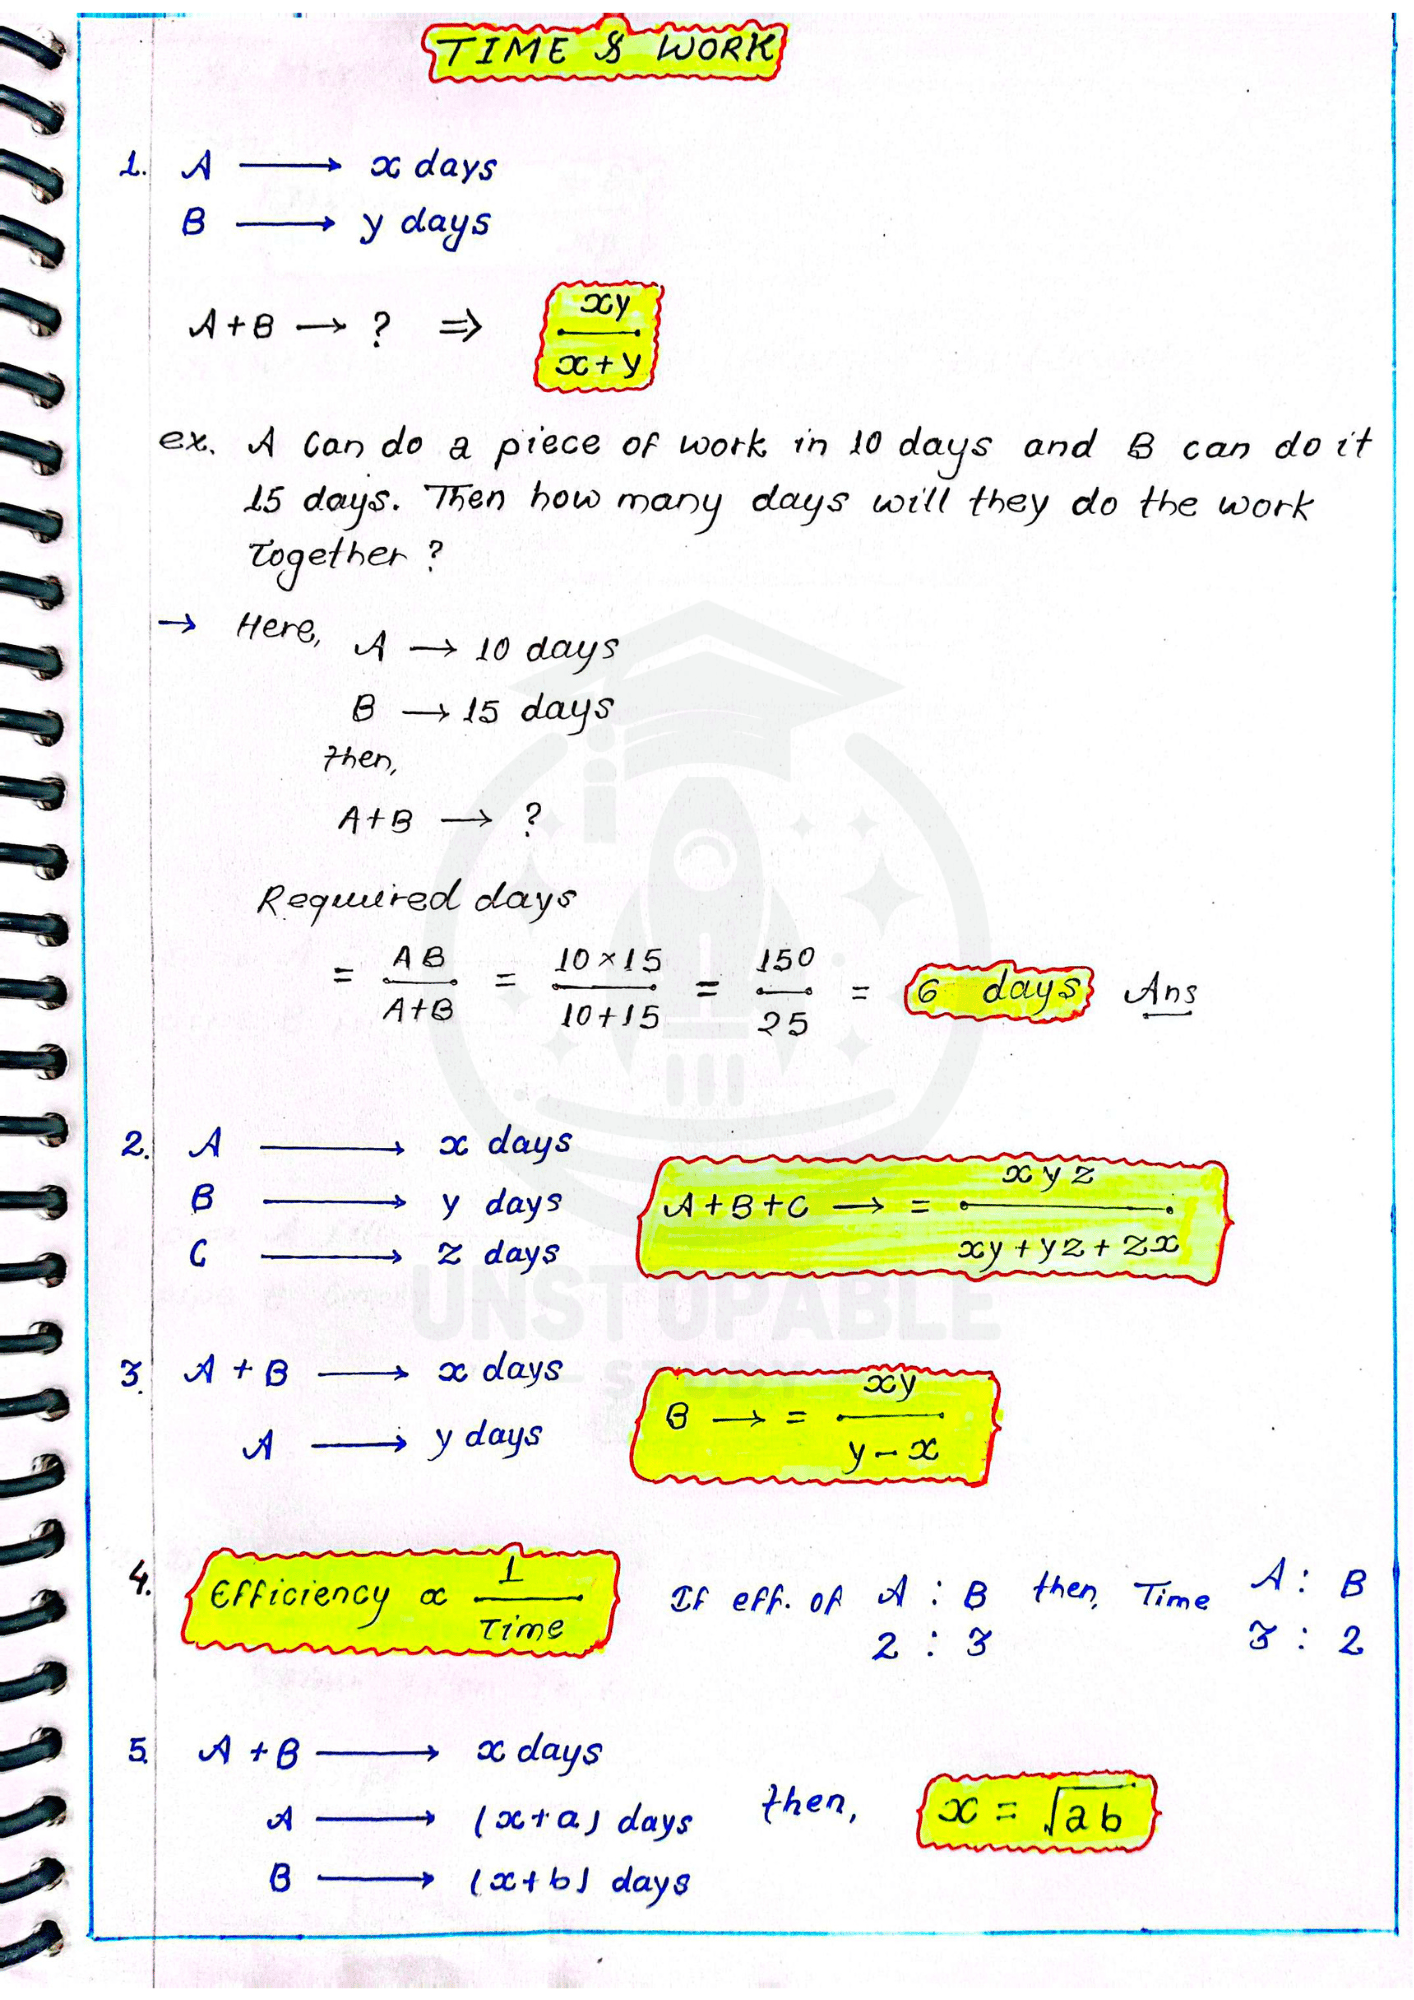 TIME & WORK
1. A ⟶ x days
B ⟶ y days
A+B → ? ⇒ xy / x+y
ex. A can do a piece of work in 10 days and B can do it
15 days. Then how many days will they do the work
together ?
→ Here, A → 10 days
B → 15 days
then,
A+B → ?
Required days
= AB / A+B = 10×15 / 10+15 = 150 / 25 = 6 days Ans
2. A ⟶ x days
B ⟶ y days
C ⟶ z days
A+B+C → = xyz / xy+yz+zx
UNSTUPABLE
STUDY
3. A+B ⟶ x days
A ⟶ y days
B → = xy / y-x
4. Efficiency ∝ 1 / Time If eff. of A : B then, Time A : B
2 : 3 3 : 2
5. A+B ⟶ x days
A ⟶ (x+a) days then, x = √ab
B ⟶ (x+b) days